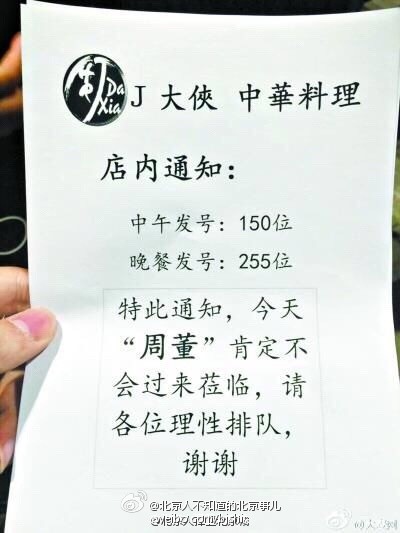 Da
Xia
J 大俠 中華料理
店内通知：
中午发号：150位
晚餐发号：255位
特此通知，今天
“周董”肯定不
会过来莅临，请
各位理性排队，
谢谢
@北京人不知道的北京事儿